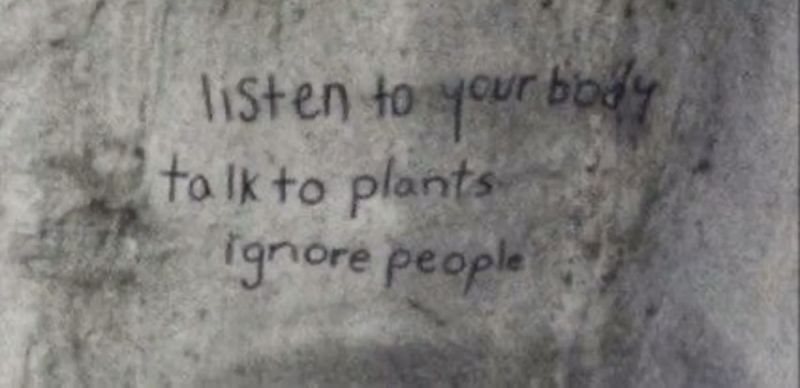 listen to your body
talk to plants
ignore people